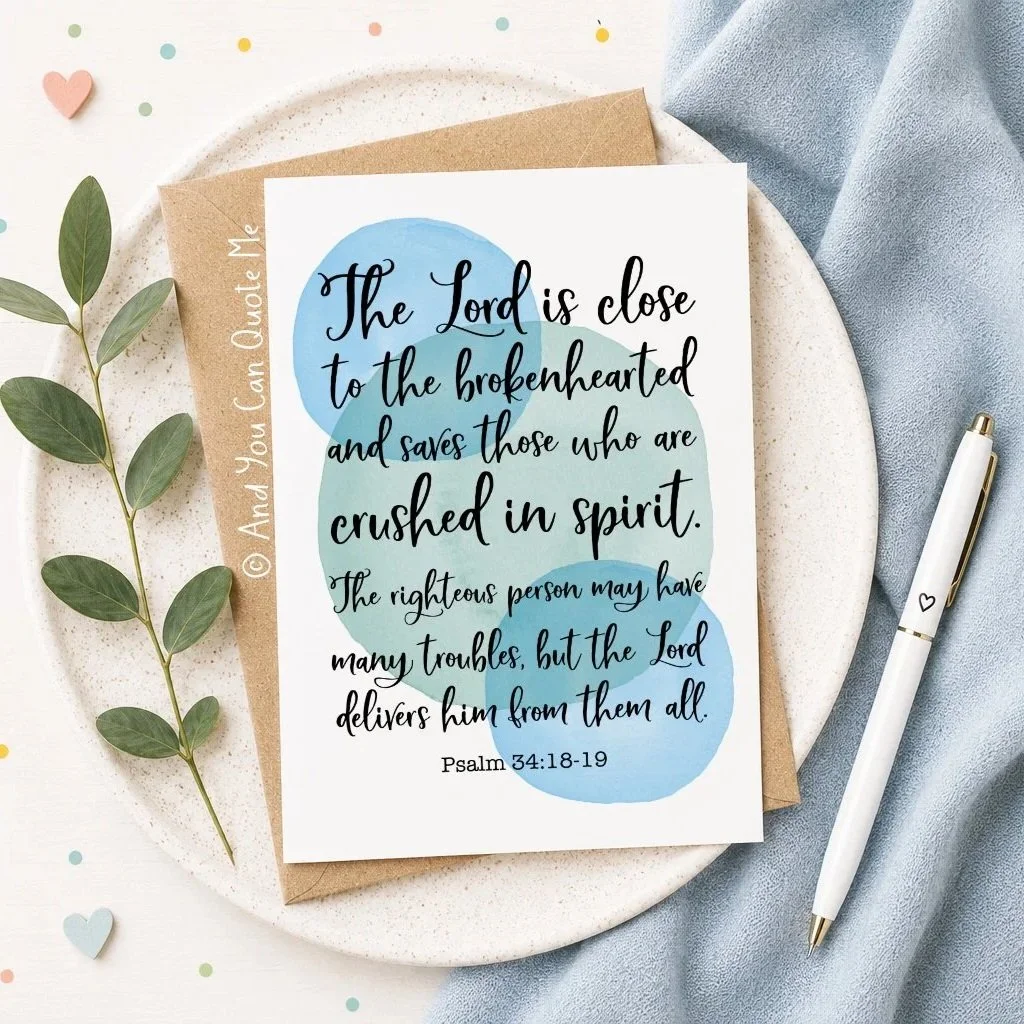 The Lord is close
to the brokenhearted
and saves those who are
crushed in spirit.
The righteous person may have
many troubles, but the Lord
delivers him from them all.
Psalm 34:18-19
© And You Can Quote Me